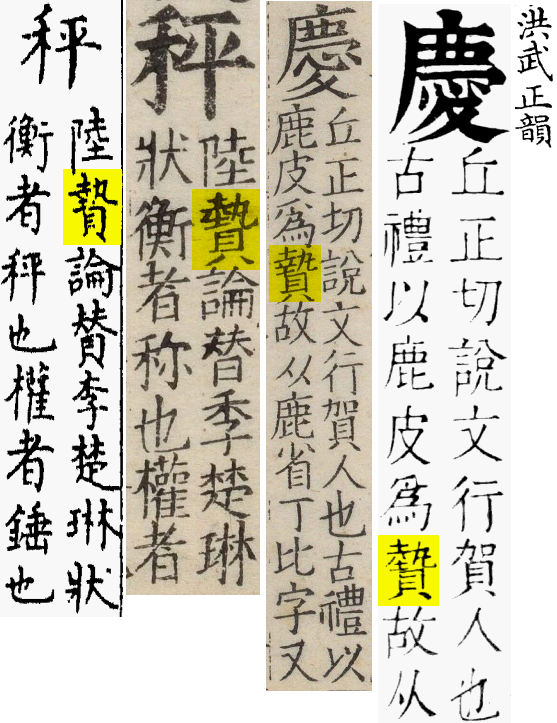 洪武正韻
慶
丘正切說文行賀人也
古禮以鹿皮爲贄故从
慶
丘正切說文行賀人也古禮以
鹿皮爲贄故从鹿省丁比字又
秤
陸贄論替季楚琳
狀衡者称也權者
秤
陸贄論替李楚琳狀
衡者秤也權者錘也